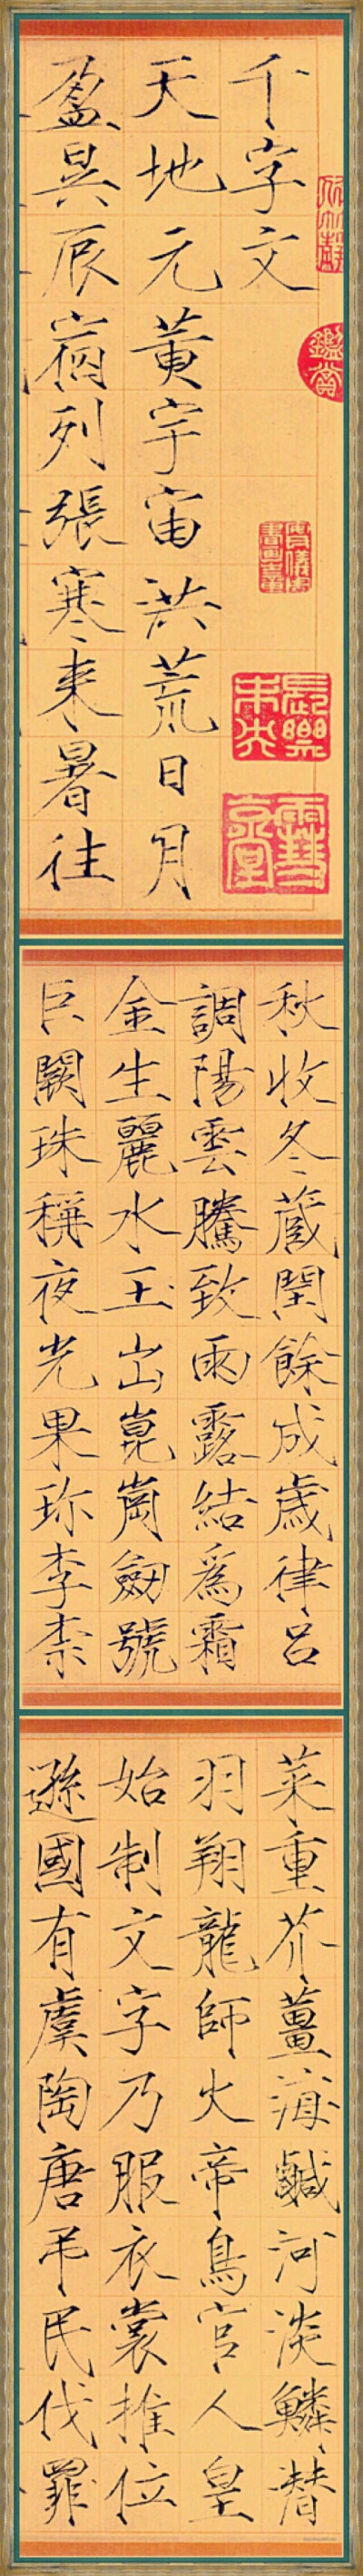 千字文
天地元黄宇宙洪荒日月
盈昃辰宿列張寒来暑往
秋收冬蔵閏餘成歳律吕
調陽雲騰致雨露結為霜
金生麗水玉出崑崗劒號
巨闕珠稱夜光果珎李柰
菜重芥薑海鹹河淡鱗潜
羽翔龍師火帝鳥官人皇
始制文字乃服衣裳推位
遜國有虞陶唐弔民伐罪
鑑賞
長樂未央